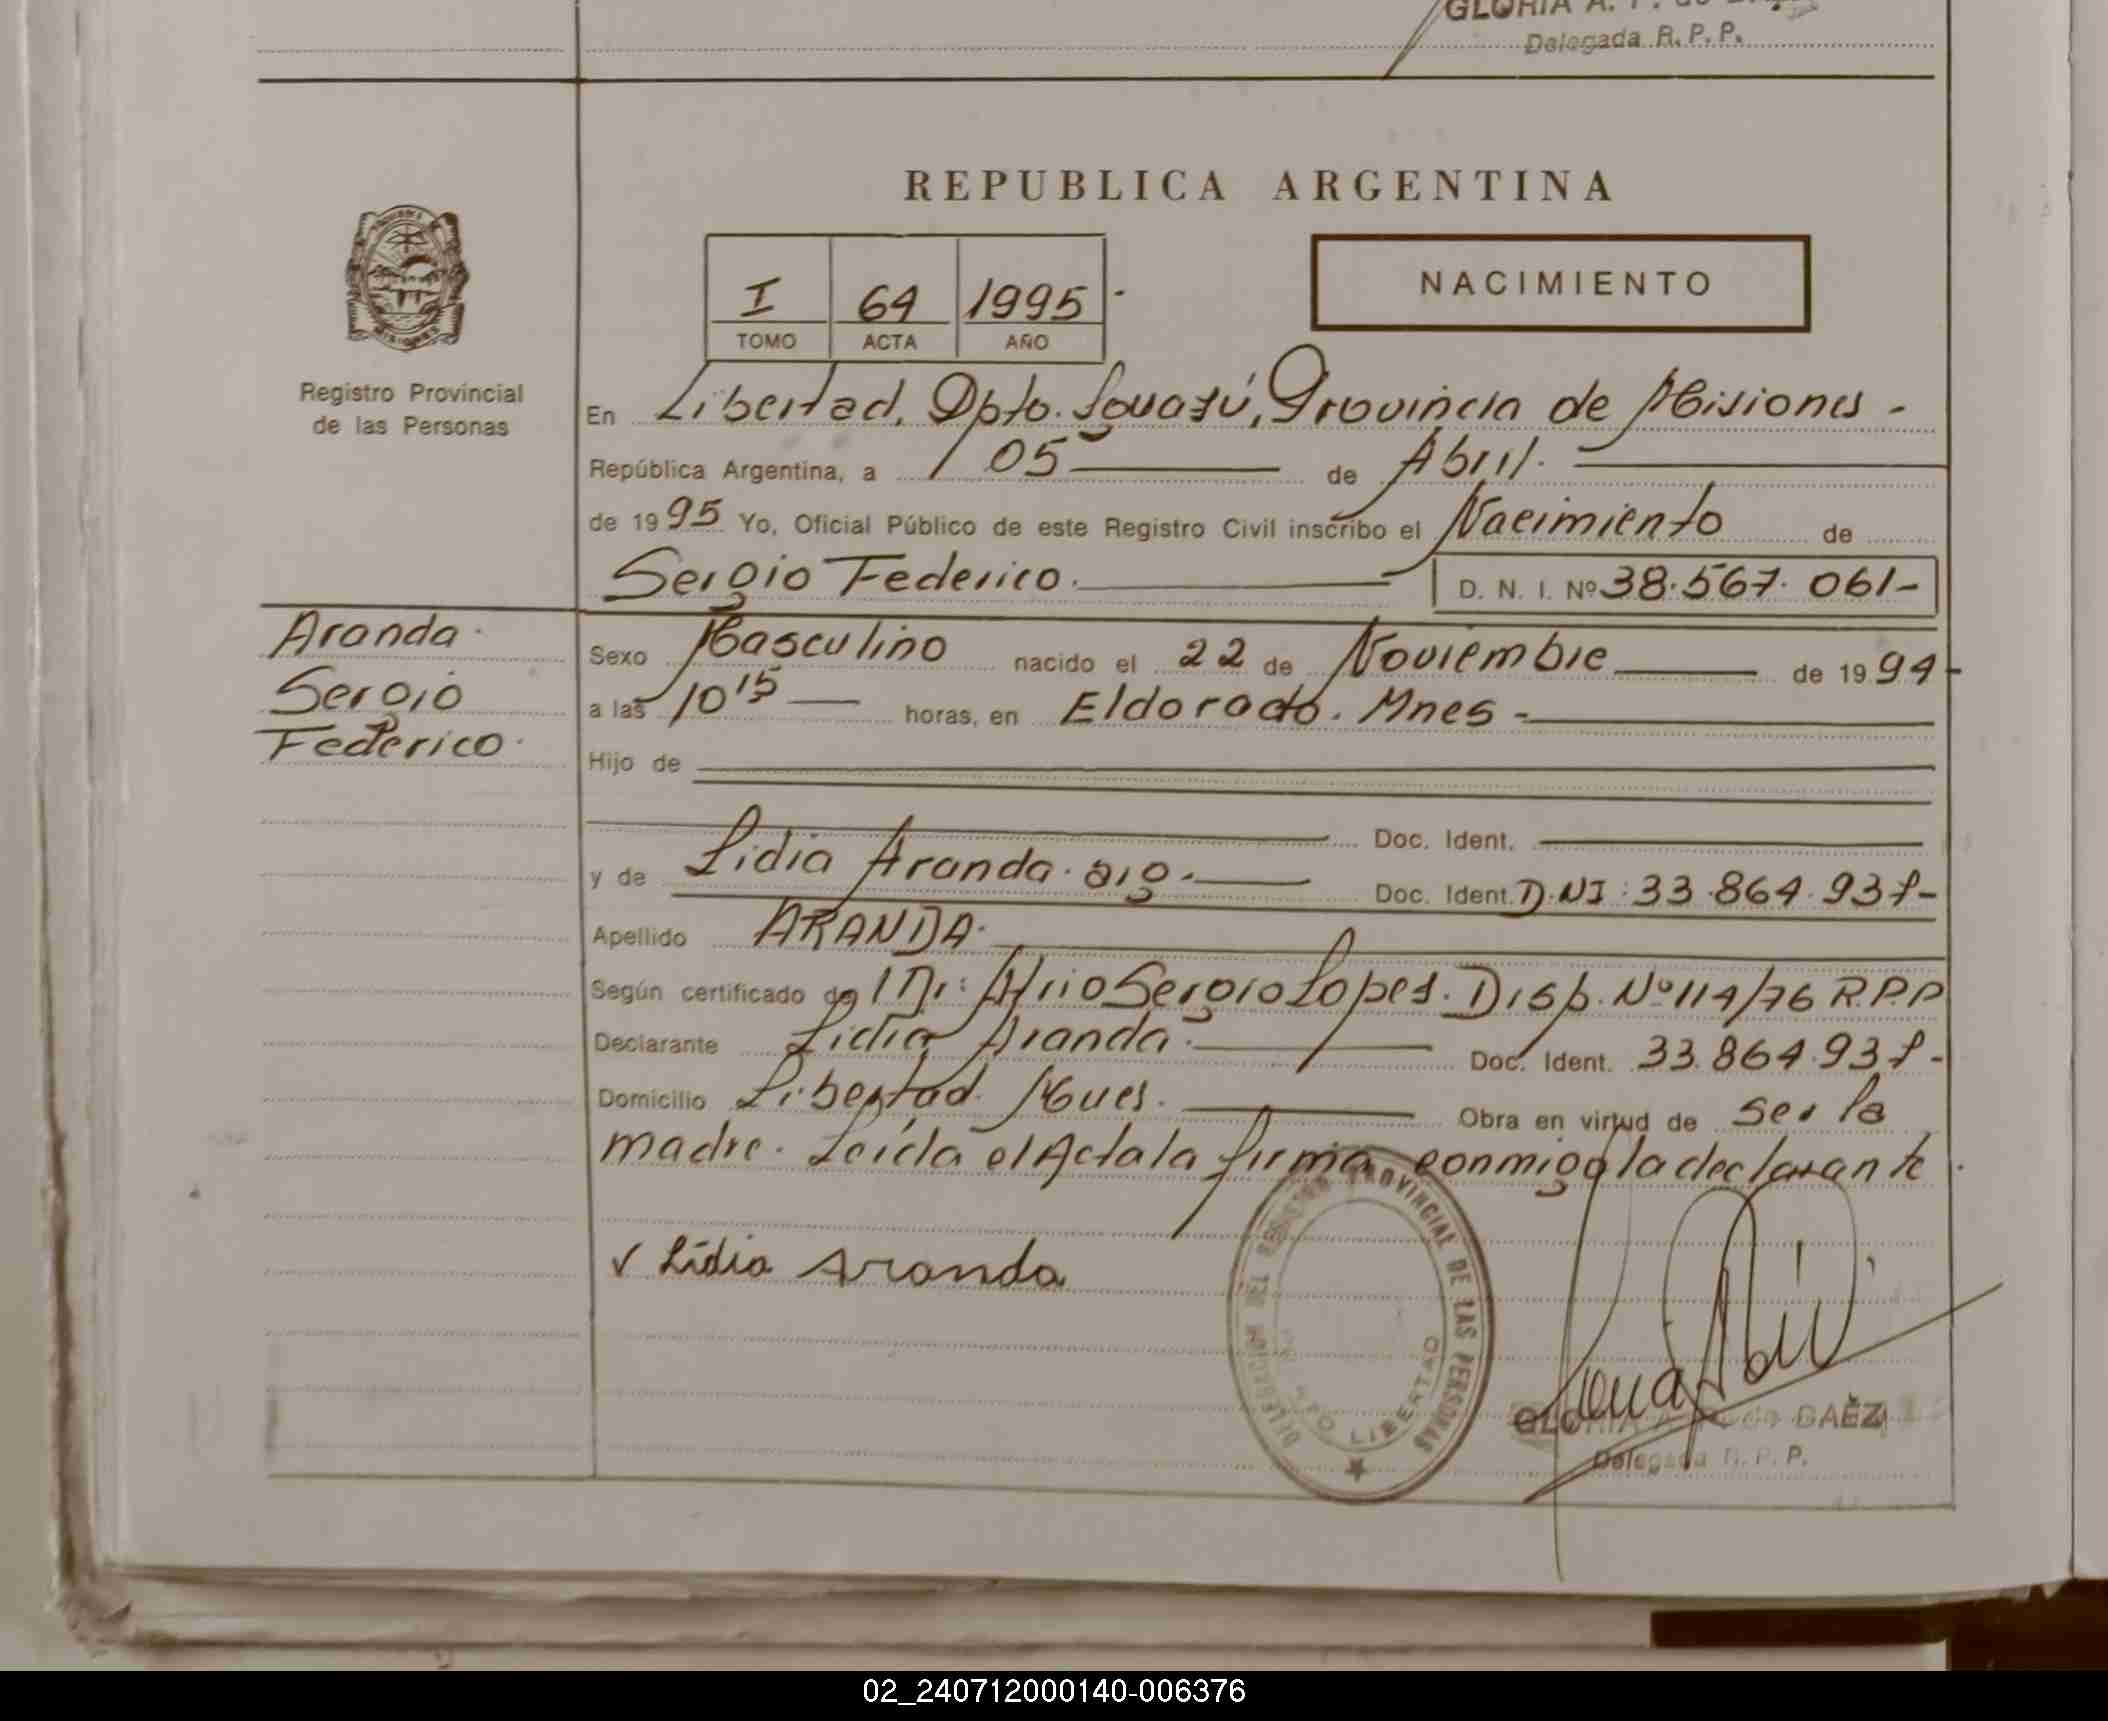 GLORIA A.
Delegada R. P. P.
REPUBLICA ARGENTINA
I 64 1995
TOMO ACTA AÑO
NACIMIENTO
Registro Provincial
de las Personas
En Libertad, Dpto. Iguazú, Provincia de Misiones -
República Argentina, a 05 de Abril.
de 1995 Yo, Oficial Público de este Registro Civil inscribo el Nacimiento de
Sergio Federico. D. N. I. Nº 38.567.061-
Aranda
Sergio
Federico.
Sexo Masculino nacido el 22 de Noviembre de 1994-
a las 10 15 horas, en Eldorado. Mnes -
Hijo de
Doc. Ident.
y de Lidia Aranda. arg. Doc. Ident. D.NI: 33.864.937-
Apellido ARANDA.
Según certificado de Sergio Lopes. Disp. Nº 114/76 R.P.P
Declarante Lidia Aranda. Doc. Ident. 33.864.937-
Domicilio Libertad. Mnes. Obra en virtud de ser la
madre. Leída el Acta la firma conmigo la declarante.
✓ Lidia Aranda
DELEGACION DEL REGISTRO PROVINCIAL DE LAS PERSONAS
LIBERTAD
GLORIA A. de BAEZ
Delegada R. P. P.
02_240712000140-006376